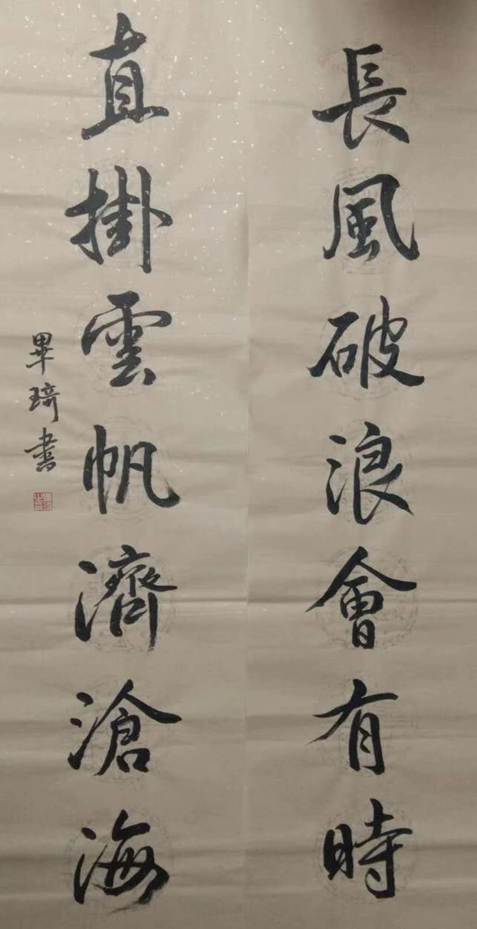 長風破浪會有時
直掛雲帆濟滄海
畢琦書